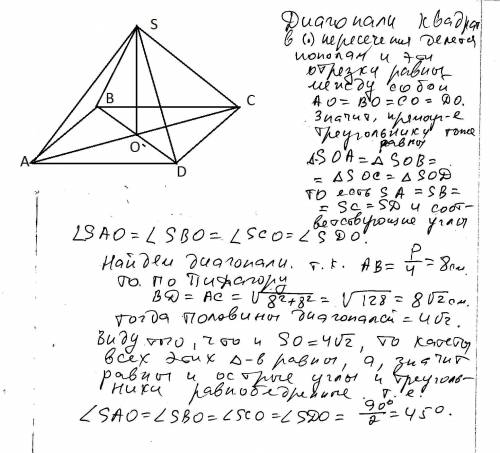 S
B
C
O
A
D
Диагонали квадрат
в (·) пересечения делятся
пополам и эти
отрезки равны
между собой
AO = BO = CO = DO.
Значит, прямоуг-е
треугольники тоже
равны
△SOA = △SOB =
= △SOC = △SOD
то есть SA = SB =
= SC = SD и соот-
ветствующие углы
∠SAO = ∠SBO = ∠SCO = ∠SDO.
Найдем диагонали. т.к. AB = P/4 = 8см.
то по Пифагору
BD = AC = √8²+8² = √128 = 8√2 см.
тогда половины диагоналей = 4√2.
Ввиду того, что и SO = 4√2, то катеты
всех этих △-в равны, а, значит
равны и острые углы и треуголь-
ники равнобедренные т.е.
∠SAO = ∠SBO = ∠SCO = ∠SDO = 90°/2 = 45°.